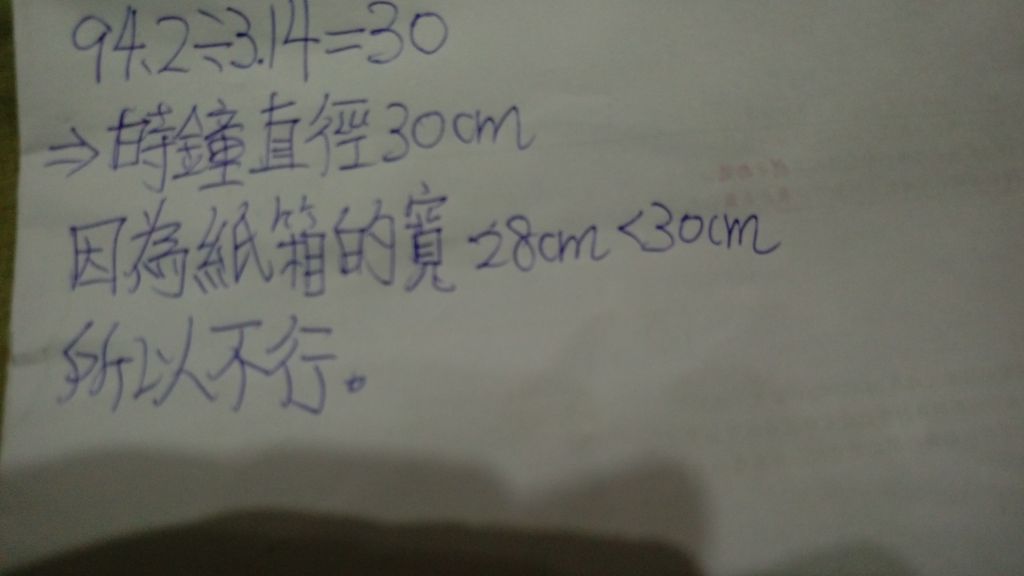 94.2÷3.14=30
⇒時鐘直徑30cm
因為紙箱的寬28cm<30cm
所以不行。